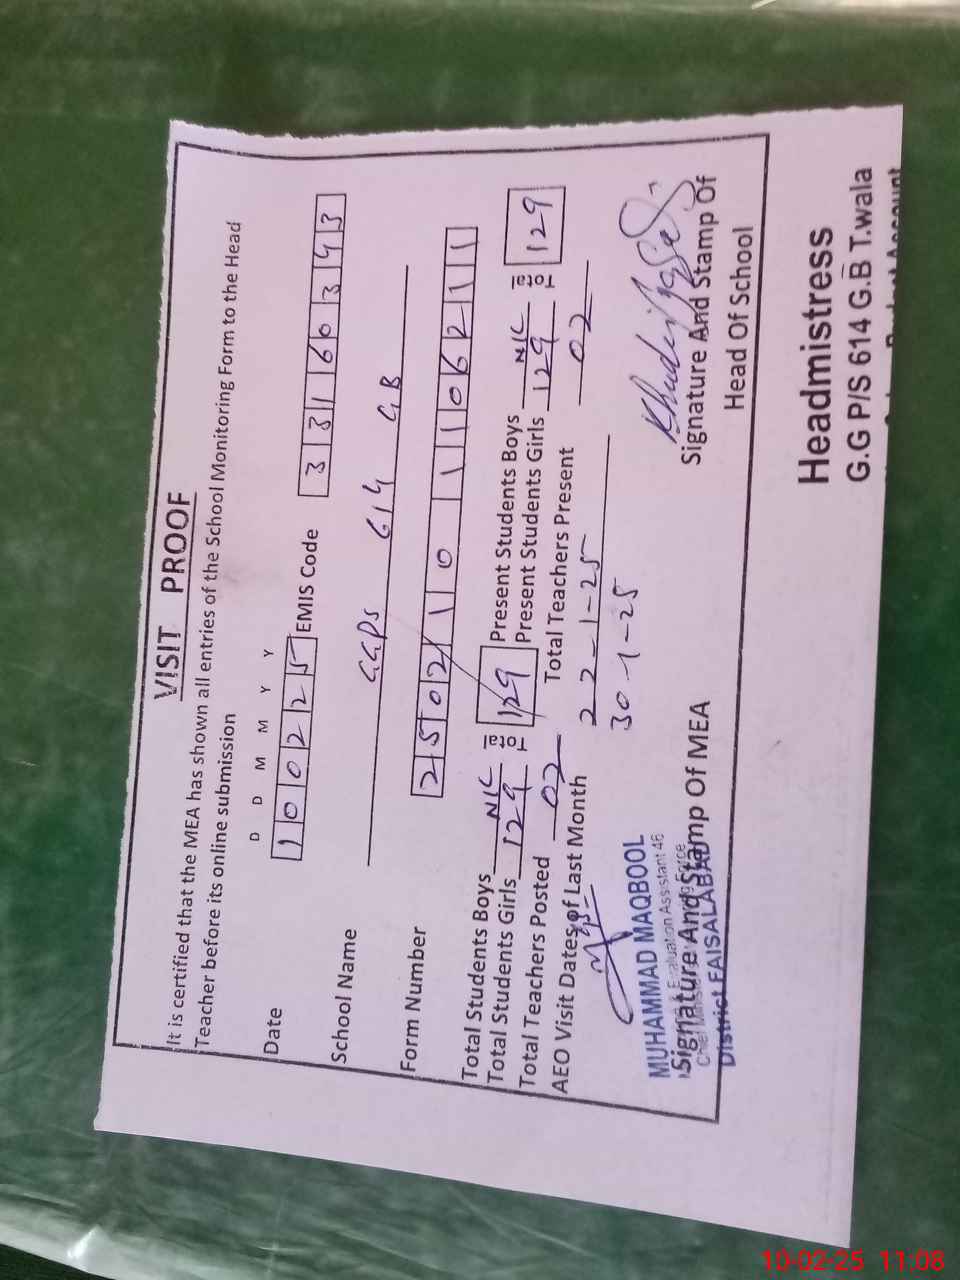 VISIT PROOF
It is certified that the MEA has shown all entries of the School Monitoring Form to the Head
Teacher before its online submission
D D M M Y Y
Date 100225 EMIS Code 33160343
School Name GGPS 614 GB
Form Number 25021101106211
Total Students Boys N/C Total 129 Present Students Boys N/C Total 129
Total Students Girls 129 Present Students Girls 129
Total Teachers Posted 02 Total Teachers Present 02
AEO Visit Dates of Last Month 22-1-25
30-1-25
MUHAMMAD MAQBOOL
& Evaluation Assistant 46
Signature And Stamp Of MEA
District FAISALABAD
Signature And Stamp Of
Head Of School
Headmistress
G.G P/S 614 G.B T.wala
10-02-25 11:08